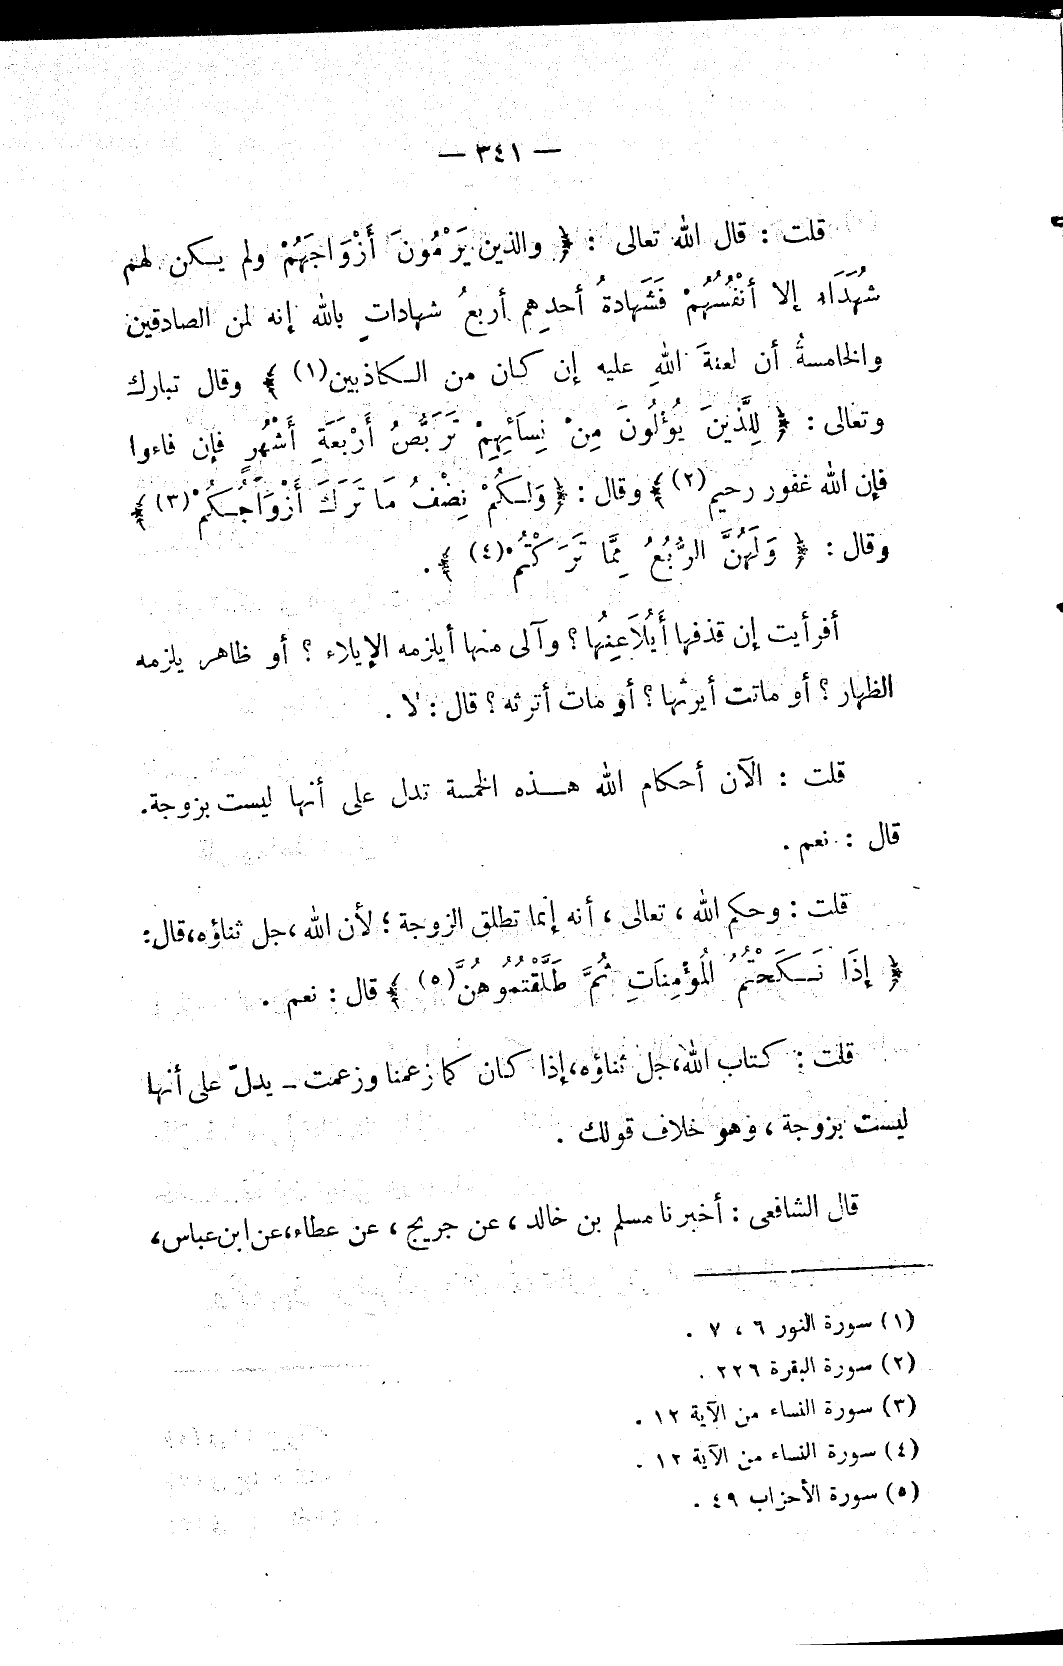 — ٣٤١ —
قلت : قال الله تعالى : ﴿ والذين يَرْمُونَ أَزْوَاجَهُمْ ولم يكن لهم
شُهَدَاء إلا أنْفُسُهُمْ فَشَهَادةُ أحدِهم أربعُ شهاداتٍ بالله إنه لمن الصادقين
والخامسةُ أن لعنةَ اللهِ عليه إن كان من الكاذبين(١) ﴾ وقال تبارك
وتعالى : ﴿ لِلَّذِينَ يُؤْلُونَ مِنْ نِسَائِهِمْ تَرَبُّصُ أَرْبَعَةِ أَشْهُرٍ فإن فاءوا
فإن الله غفور رحيم(٢) ﴾ وقال : ﴿ وَلَكُمْ نِصْفُ مَا تَرَكَ أَزْوَاجُكُمْ(٣) ﴾
وقال : ﴿ وَلَهُنَّ الرُّبُعُ مِمَّا تَرَكْتُمْ(٤) ﴾ .
أفرأيت إن قذفها أَيُلاَعِنُها ؟ وآلى منها أيلزمه الإيلاء ؟ أو ظاهر يلزمه
الظهار ؟ أو ماتت أيرثها ؟ أو مات أترثه ؟ قال : لا .
قلت : الآن أحكام الله هذه الخمسة تدل على أنها ليست بزوجة.
قال : نعم .
قلت : وحكم الله ، تعالى ، أنه إنما تطلق الزوجة ؛ لأن الله ،جل ثناؤه،قال:
﴿ إذَا نَكَحْتُمُ الْمُؤْمِنَاتِ ثُمَّ طَلَّقْتُمُوهُنَّ(٥) ﴾ قال : نعم .
قلت : كتاب الله،جل ثناؤه،إذا كان كما زعمنا وزعمت ــ يدلّ على أنها
ليست بزوجة ، وهو خلاف قولك .
قال الشافعى : أخبرنا مسلم بن خالد ، عن جريج ، عن عطاء،عن ابن عباس،
(١) سورة النور ٦ ، ٧ .
(٢) سورة البقرة ٢٢٦ .
(٣) سورة النساء من الآية ١٢ .
(٤) سورة النساء من الآية ١٢ .
(٥) سورة الأحزاب ٤٩ .